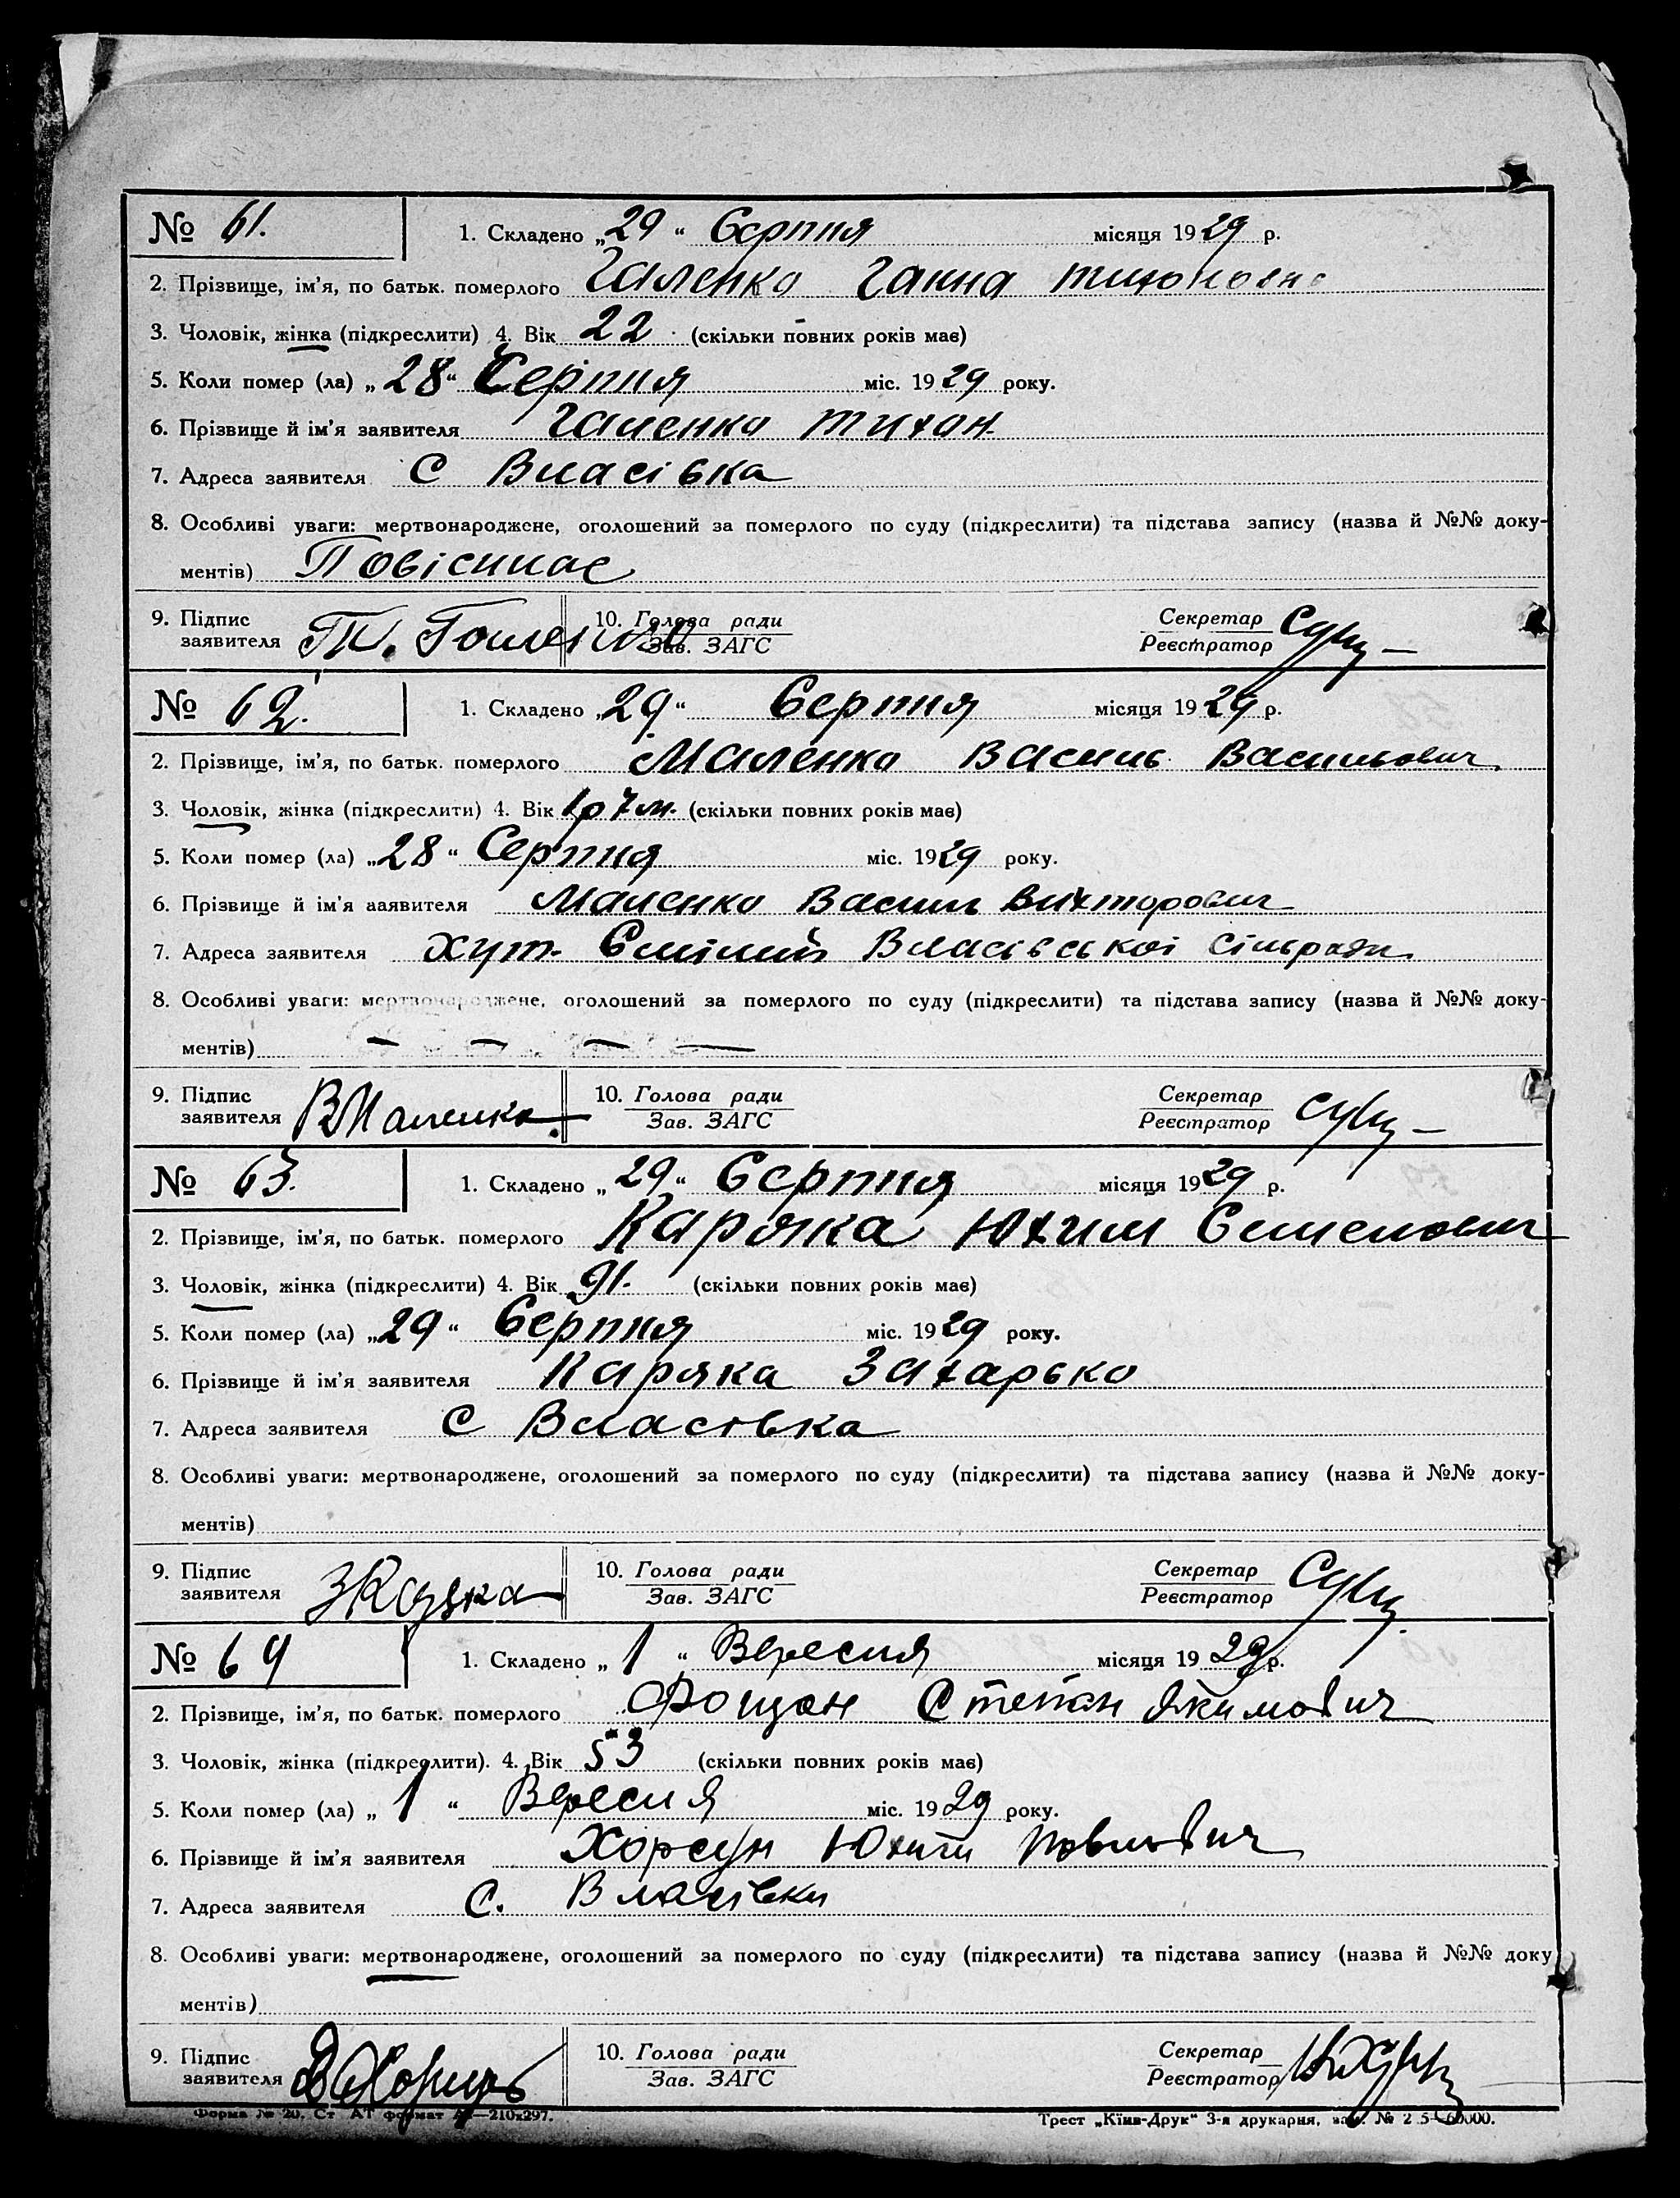 № 61. 1. Складено „29“ Серпня місяця 1929 р.
2. Прізвище, ім'я, по батьк. померлого Галенко Ганна Тихоновна
3. Чоловік, жінка (підкреслити) 4. Вік 22 (скільки повних років має)
5. Коли помер (ла) „28“ Серпня міс. 1929 року.
6. Прізвище й ім'я заявителя Галенко Тихон.
7. Адреса заявителя С Власівка
8. Особливі уваги: мертвонароджене, оголошений за померлого по суду (підкреслити) та підстава запису (назва й №№ доку-
ментів)
9. Підпис 10. Голова ради Секретар
заявителя Т. Галенко Зав. ЗАГС Реєстратор
№ 62. 1. Складено „29“ Серпня місяця 1929 р.
2. Прізвище, ім'я, по батьк. померлого Маленко Василь Васильович.
3. Чоловік, жінка (підкреслити) 4. Вік 1р 7 м. (скільки повних років має)
5. Коли помер (ла) „28“ Серпня міс. 1929 року.
6. Прізвище й ім'я заявителя Маленко Василь Вихторович
7. Адреса заявителя хут. Власівської сільради
8. Особливі уваги: мертвонароджене, оголошений за померлого по суду (підкреслити) та підстава запису (назва й №№ доку-
ментів) — — — —
9. Підпис 10. Голова ради Секретар
заявителя ВМаленко. Зав. ЗАГС Реєстратор
№ 63. 1. Складено „29“ Серпня місяця 1929 р.
2. Прізвище, ім'я, по батьк. померлого Каряка Юхим Семенович
3. Чоловік, жінка (підкреслити) 4. Вік 91. (скільки повних років має)
5. Коли помер (ла) „29“ Серпня міс. 1929 року.
6. Прізвище й ім'я заявителя Каряка Захарько
7. Адреса заявителя С Власівка
8. Особливі уваги: мертвонароджене, оголошений за померлого по суду (підкреслити) та підстава запису (назва й №№ доку-
ментів)
9. Підпис 10. Голова ради Секретар
заявителя ЗКаряка Зав. ЗАГС Реєстратор
№ 64 1. Складено „1“ Вересня місяця 1929 р.
2. Прізвище, ім'я, по батьк. померлого Фощан Степан Якимович
3. Чоловік, жінка (підкреслити). 4. Вік 53 (скільки повних років має)
5. Коли помер (ла) „1“ Вересня міс. 1929 року.
6. Прізвище й ім'я заявителя Хорсун Юхим Павлович
7. Адреса заявителя С. Власівки
8. Особливі уваги: мертвонароджене, оголошений за померлого по суду (підкреслити) та підстава запису (назва й №№ доку
ментів)
9. Підпис 10. Голова ради Секретар
заявителя Зав. ЗАГС Реєстратор
Форма № 20. Ст АТ формат А4—210x297. Трест „Київ-Друк“ 3-я друкарня, зам. № 2 5—60000.